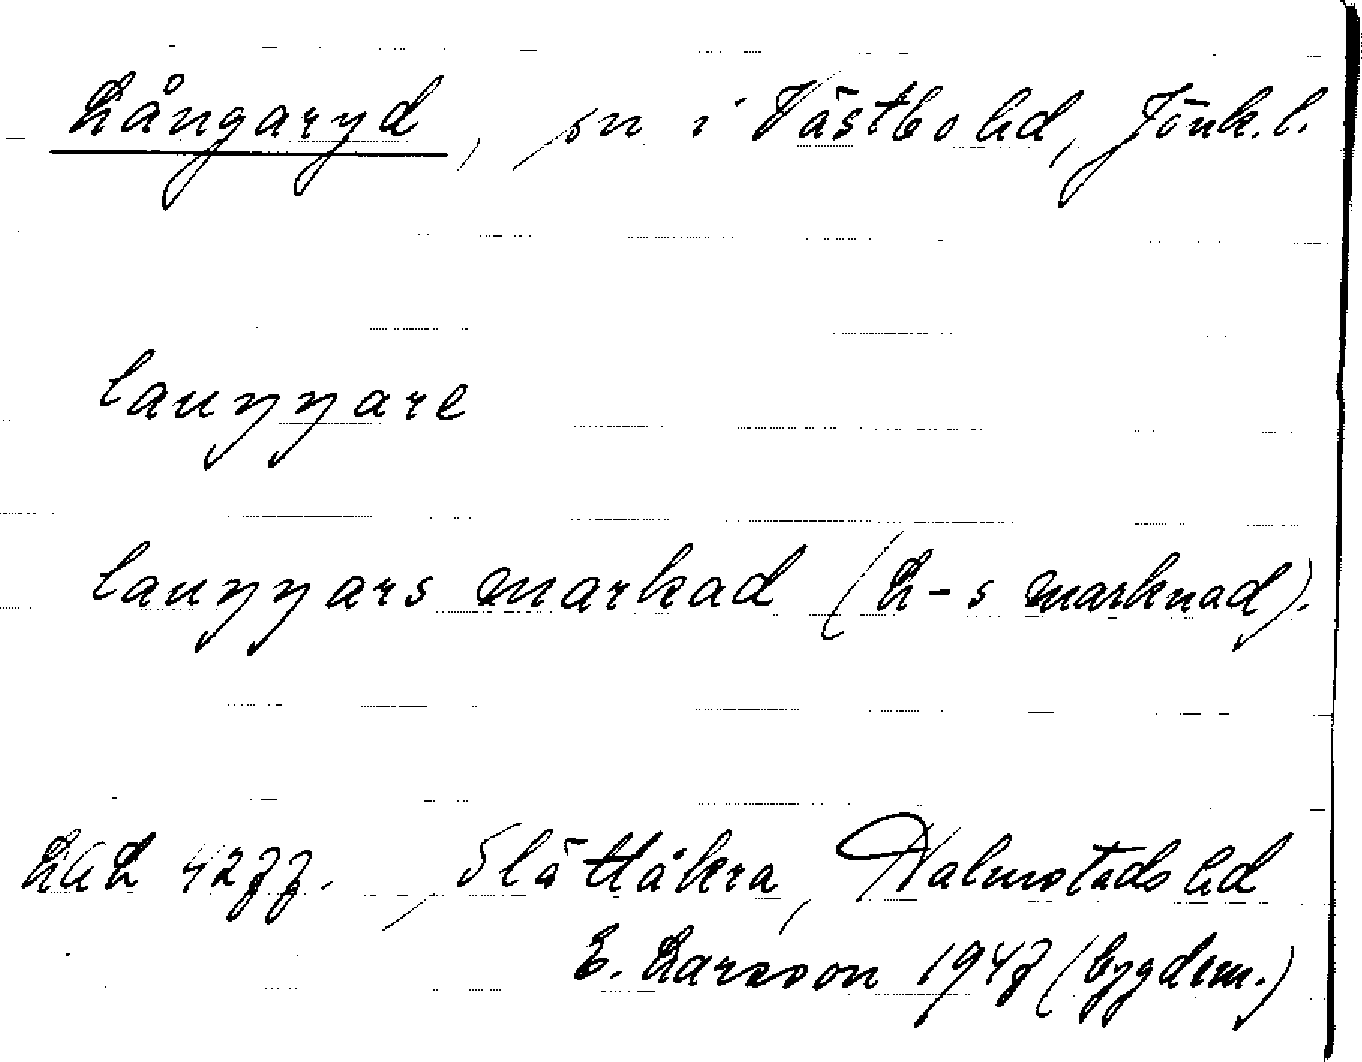 Långaryd, sn i Västbo hd, Jönk.l.
lauŋŋare
lauŋŋars markad (L-s marknad).
LAL 4277. Slättåkra, Halmstads hd
E. Larsson 1947 (bygdem.)